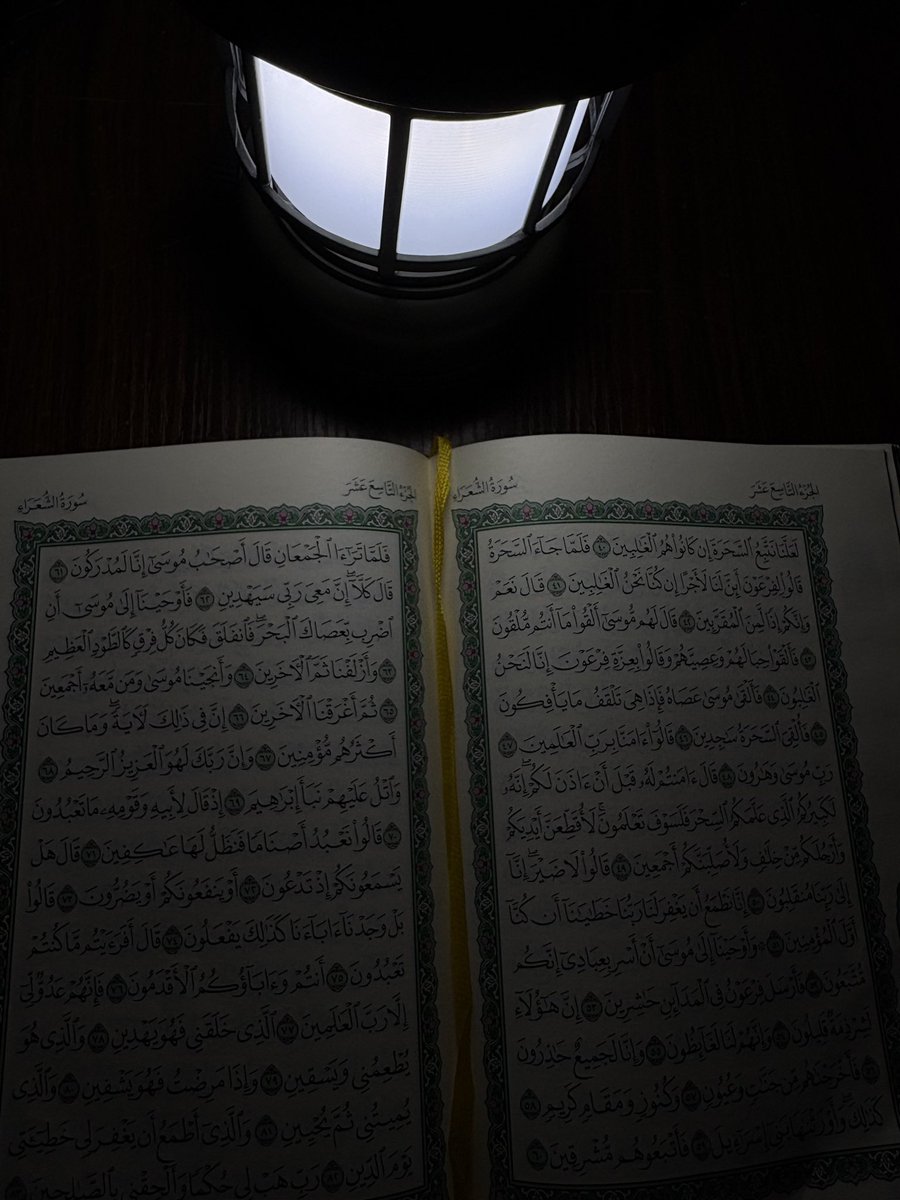 الجزء التاسع عشر
سورة الشعراء
لَعَلَّنَا نَتَّبِعُ ٱلسَّحَرَةَ إِن كَانُوا۟ هُمُ ٱلْغَـٰلِبِينَ ٤٠ فَلَمَّا جَآءَ ٱلسَّحَرَةُ
قَالُوا۟ لِفِرْعَوْنَ أَئِنَّ لَنَا لَأَجْرًا إِن كُنَّا نَحْنُ ٱلْغَـٰلِبِينَ ٤١ قَالَ نَعَمْ
وَإِنَّكُمْ إِذًا لَّمِنَ ٱلْمُقَرَّبِينَ ٤٢ قَالَ لَهُم مُّوسَىٰٓ أَلْقُوا۟ مَآ أَنتُم مُّلْقُونَ
٤٣ فَأَلْقَوْا۟ حِبَالَهُمْ وَعِصِيَّهُمْ وَقَالُوا۟ بِعِزَّةِ فِرْعَوْنَ إِنَّا لَنَحْنُ
ٱلْغَـٰلِبُونَ ٤٤ فَأَلْقَىٰ مُوسَىٰ عَصَاهُ فَإِذَا هِىَ تَلْقَفُ مَا يَأْفِكُونَ
٤٥ فَأُلْقِىَ ٱلسَّحَرَةُ سَـٰجِدِينَ ٤٦ قَالُوٓا۟ ءَامَنَّا بِرَبِّ ٱلْعَـٰلَمِينَ ٤٧
رَبِّ مُوسَىٰ وَهَـٰرُونَ ٤٨ قَالَ ءَامَنتُمْ لَهُۥ قَبْلَ أَنْ ءَاذَنَ لَكُمْ ۖ إِنَّهُۥ
لَكَبِيرُكُمُ ٱلَّذِى عَلَّمَكُمُ ٱلسِّحْرَ فَلَسَوْفَ تَعْلَمُونَ ۚ لَأُقَطِّعَنَّ أَيْدِيَكُمْ
وَأَرْجُلَكُم مِّنْ خِلَـٰفٍ وَلَأُصَلِّبَنَّكُمْ أَجْمَعِينَ ٤٩ قَالُوا۟ لَا ضَيْرَ ۖ إِنَّآ
إِلَىٰ رَبِّنَا مُنقَلِبُونَ ٥٠ إِنَّا نَطْمَعُ أَن يَغْفِرَ لَنَا رَبُّنَا خَطَـٰيَـٰنَآ أَن كُنَّآ
أَوَّلَ ٱلْمُؤْمِنِينَ ٥١ وَأَوْحَيْنَآ إِلَىٰ مُوسَىٰٓ أَنْ أَسْرِ بِعِبَادِىٓ إِنَّكُم
مُّتَّبَعُونَ ٥٢ فَأَرْسَلَ فِرْعَوْنُ فِى ٱلْمَدَآئِنِ حَـٰشِرِينَ ٥٣ إِنَّ هَـٰٓؤُلَآءِ
لَشِرْذِمَةٌ قَلِيلُونَ ٥٤ وَإِنَّهُمْ لَنَا لَغَآئِظُونَ ٥٥ وَإِنَّا لَجَمِيعٌ حَـٰذِرُونَ
٥٦ فَأَخْرَجْنَـٰهُم مِّن جَنَّـٰتٍ وَعُيُونٍ ٥٧ وَكُنُوزٍ وَمَقَامٍ كَرِيمٍ ٥٨
كَذَٰلِكَ وَأَوْرَثْنَـٰهَا بَنِىٓ إِسْرَٰٓءِيلَ ٥٩ فَأَتْبَعُوهُم مُّشْرِقِينَ ٦٠
الجزء التاسع عشر
سورة الشعراء
فَلَمَّا تَرَٰٓءَا ٱلْجَمْعَانِ قَالَ أَصْحَـٰبُ مُوسَىٰٓ إِنَّا لَمُدْرَكُونَ ٦١
قَالَ كَلَّآ ۖ إِنَّ مَعِىَ رَبِّى سَيَهْدِينِ ٦٢ فَأَوْحَيْنَآ إِلَىٰ مُوسَىٰٓ أَنِ
ٱضْرِب بِّعَصَاكَ ٱلْبَحْرَ ۖ فَٱنفَلَقَ فَكَانَ كُلُّ فِرْقٍ كَٱلطَّوْدِ ٱلْعَظِيمِ
٦٣ وَأَزْلَفْنَا ثَمَّ ٱلْـَٔاخَرِينَ ٦٤ وَأَنجَيْنَا مُوسَىٰ وَمَن مَّعَهُۥٓ أَجْمَعِينَ
٦٥ ثُمَّ أَغْرَقْنَا ٱلْـَٔاخَرِينَ ٦٦ إِنَّ فِى ذَٰلِكَ لَـَٔايَةً ۖ وَمَا كَانَ
أَكْثَرُهُم مُّؤْمِنِينَ ٦٧ وَإِنَّ رَبَّكَ لَهُوَ ٱلْعَزِيزُ ٱلرَّحِيمُ ٦٨
وَٱتْلُ عَلَيْهِمْ نَبَأَ إِبْرَٰهِيمَ ٦٩ إِذْ قَالَ لِأَبِيهِ وَقَوْمِهِۦ مَا تَعْبُدُونَ
٧٠ قَالُوا۟ نَعْبُدُ أَصْنَامًا فَنَظَلُّ لَهَا عَـٰكِفِينَ ٧١ قَالَ هَلْ
يَسْمَعُونَكُمْ إِذْ تَدْعُونَ ٧٢ أَوْ يَنفَعُونَكُمْ أَوْ يَضُرُّونَ ٧٣ قَالُوا۟
بَلْ وَجَدْنَآ ءَابَآءَنَا كَذَٰلِكَ يَفْعَلُونَ ٧٤ قَالَ أَفَرَءَيْتُم مَّا كُنتُمْ
تَعْبُدُونَ ٧٥ أَنتُمْ وَءَابَآؤُكُمُ ٱلْأَقْدَمُونَ ٧٦ فَإِنَّهُمْ عَدُوٌّ لِّىٓ
إِلَّا رَبَّ ٱلْعَـٰلَمِينَ ٧٧ ٱلَّذِى خَلَقَنِى فَهُوَ يَهْدِينِ ٧٨ وَٱلَّذِى هُوَ
يُطْعِمُنِى وَيَسْقِينِ ٧٩ وَإِذَا مَرِضْتُ فَهُوَ يَشْفِينِ ٨٠ وَٱلَّذِى
يُمِيتُنِى ثُمَّ يُحْيِينِ ٨١ وَٱلَّذِىٓ أَطْمَعُ أَن يَغْفِرَ لِى خَطِيٓـَٔتِى
يَوْمَ ٱلدِّينِ ٨٢ رَبِّ هَبْ لِى حُكْمًا وَأَلْحِقْنِى بِٱلصَّـٰلِحِينَ